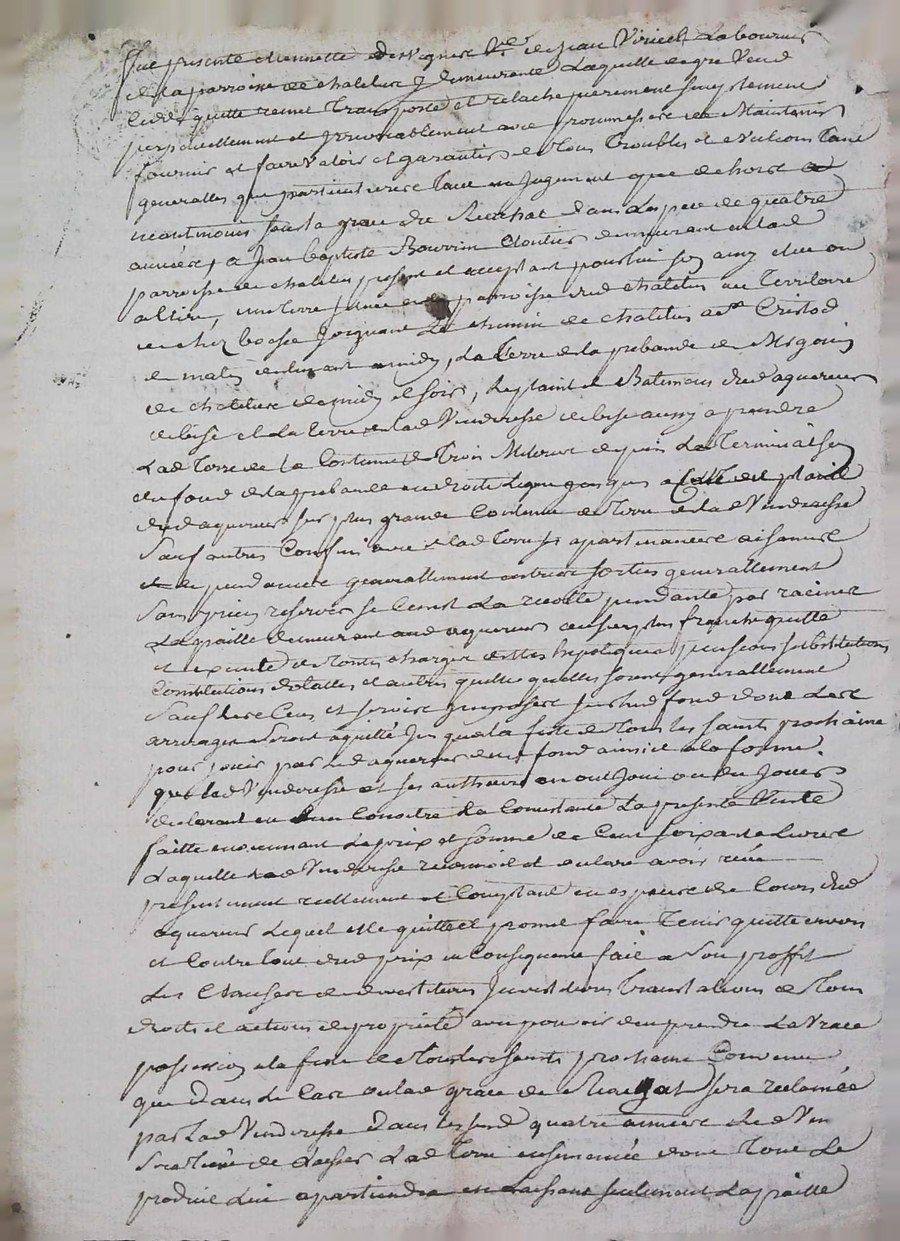 fut presente etiennette Vve de jean Laboureur
de la parroisse de chatelus y demeurante Laquelle de gre Vend
Cede quitte remet Transporte et relache purement simplement
perpetuellement et Irrevocablement avec promesse de Maintenir
fournir et faire Valoir et garantir de Tous Troubles et evictions Tant
generalles que particulieres Tant en Jugement que dehors
neantmoins sous la grace de Rachat dans Lespace de quatre
années, a Jean baptiste Cloutier demeurant en lad
parroisse de chatelus present et acceptant pour luy son amy elu ou
a Elire, une terre située en la parroisse dud chatelus au Territoire
de chez Jorgnant Le chemin de chatelus a
de matin, La Terre de la prebande de
de chatelus de midy et soir, Le plaint et Batiments dud aquereur
de bise et La terre de lad Venderesse de bise aussy a prendre
Lad Terre de La Contenue de Trois depuis La
du fond de la prebande en droite Ligne jusques a
dud aquereur sur plus grande Contenue de Terre de lad Venderesse
Sauf autres Confins avec lad Terre ses apartenances aisances
et dependances generallement entrées sorties generallement
Sans y rien reserver se Lenst La recolte pendante par racines
La paille demeurant aud aquereur au surplus franche quitte
et exempte de Toutes charges dettes hipoteques pensions substitutions
Constitutions dotalles et autres quelles quelles soient generallement
Sauf Les Cens et service imposés sur led fond dont Les
arrerages Seront aquittés Jusqua la fete de Tous les saints prochaine
pour jouir par led aquereur dud fond ainsi et a la forme
que lad Venderesse et ses autheurs en ont Joui ou du Jouir
declarant en bien Conoitre La Consistance La presente Vente
faitte moyennant Le prix et somme de Cent soixante Livres
Laquelle lad Venderesse reconnoit et declare avoir reçue
presentement reellement et Comptant en especes de Cours dud
aquereur Lequel elle quitte et promet faire Tenir quitte envers
et Contre Tous dud prix en Consequence fait a Son proffit
Les Clauses de devestitures Investitures Translations de Tous
droits et actions de propriété avec pouvoir d'en prendre La Vraie
possession a la fete de Tous les saints prochaine Convenu
que dans Le Cas ou lad grace de Rachat sera reclamée
par Lad Venderesse dans lesd quatre années led
Sera Tenu de Laisser Lad Terre ensemencée dont Tout Le
produit Lui apartiendra en Laissant seulement La paille